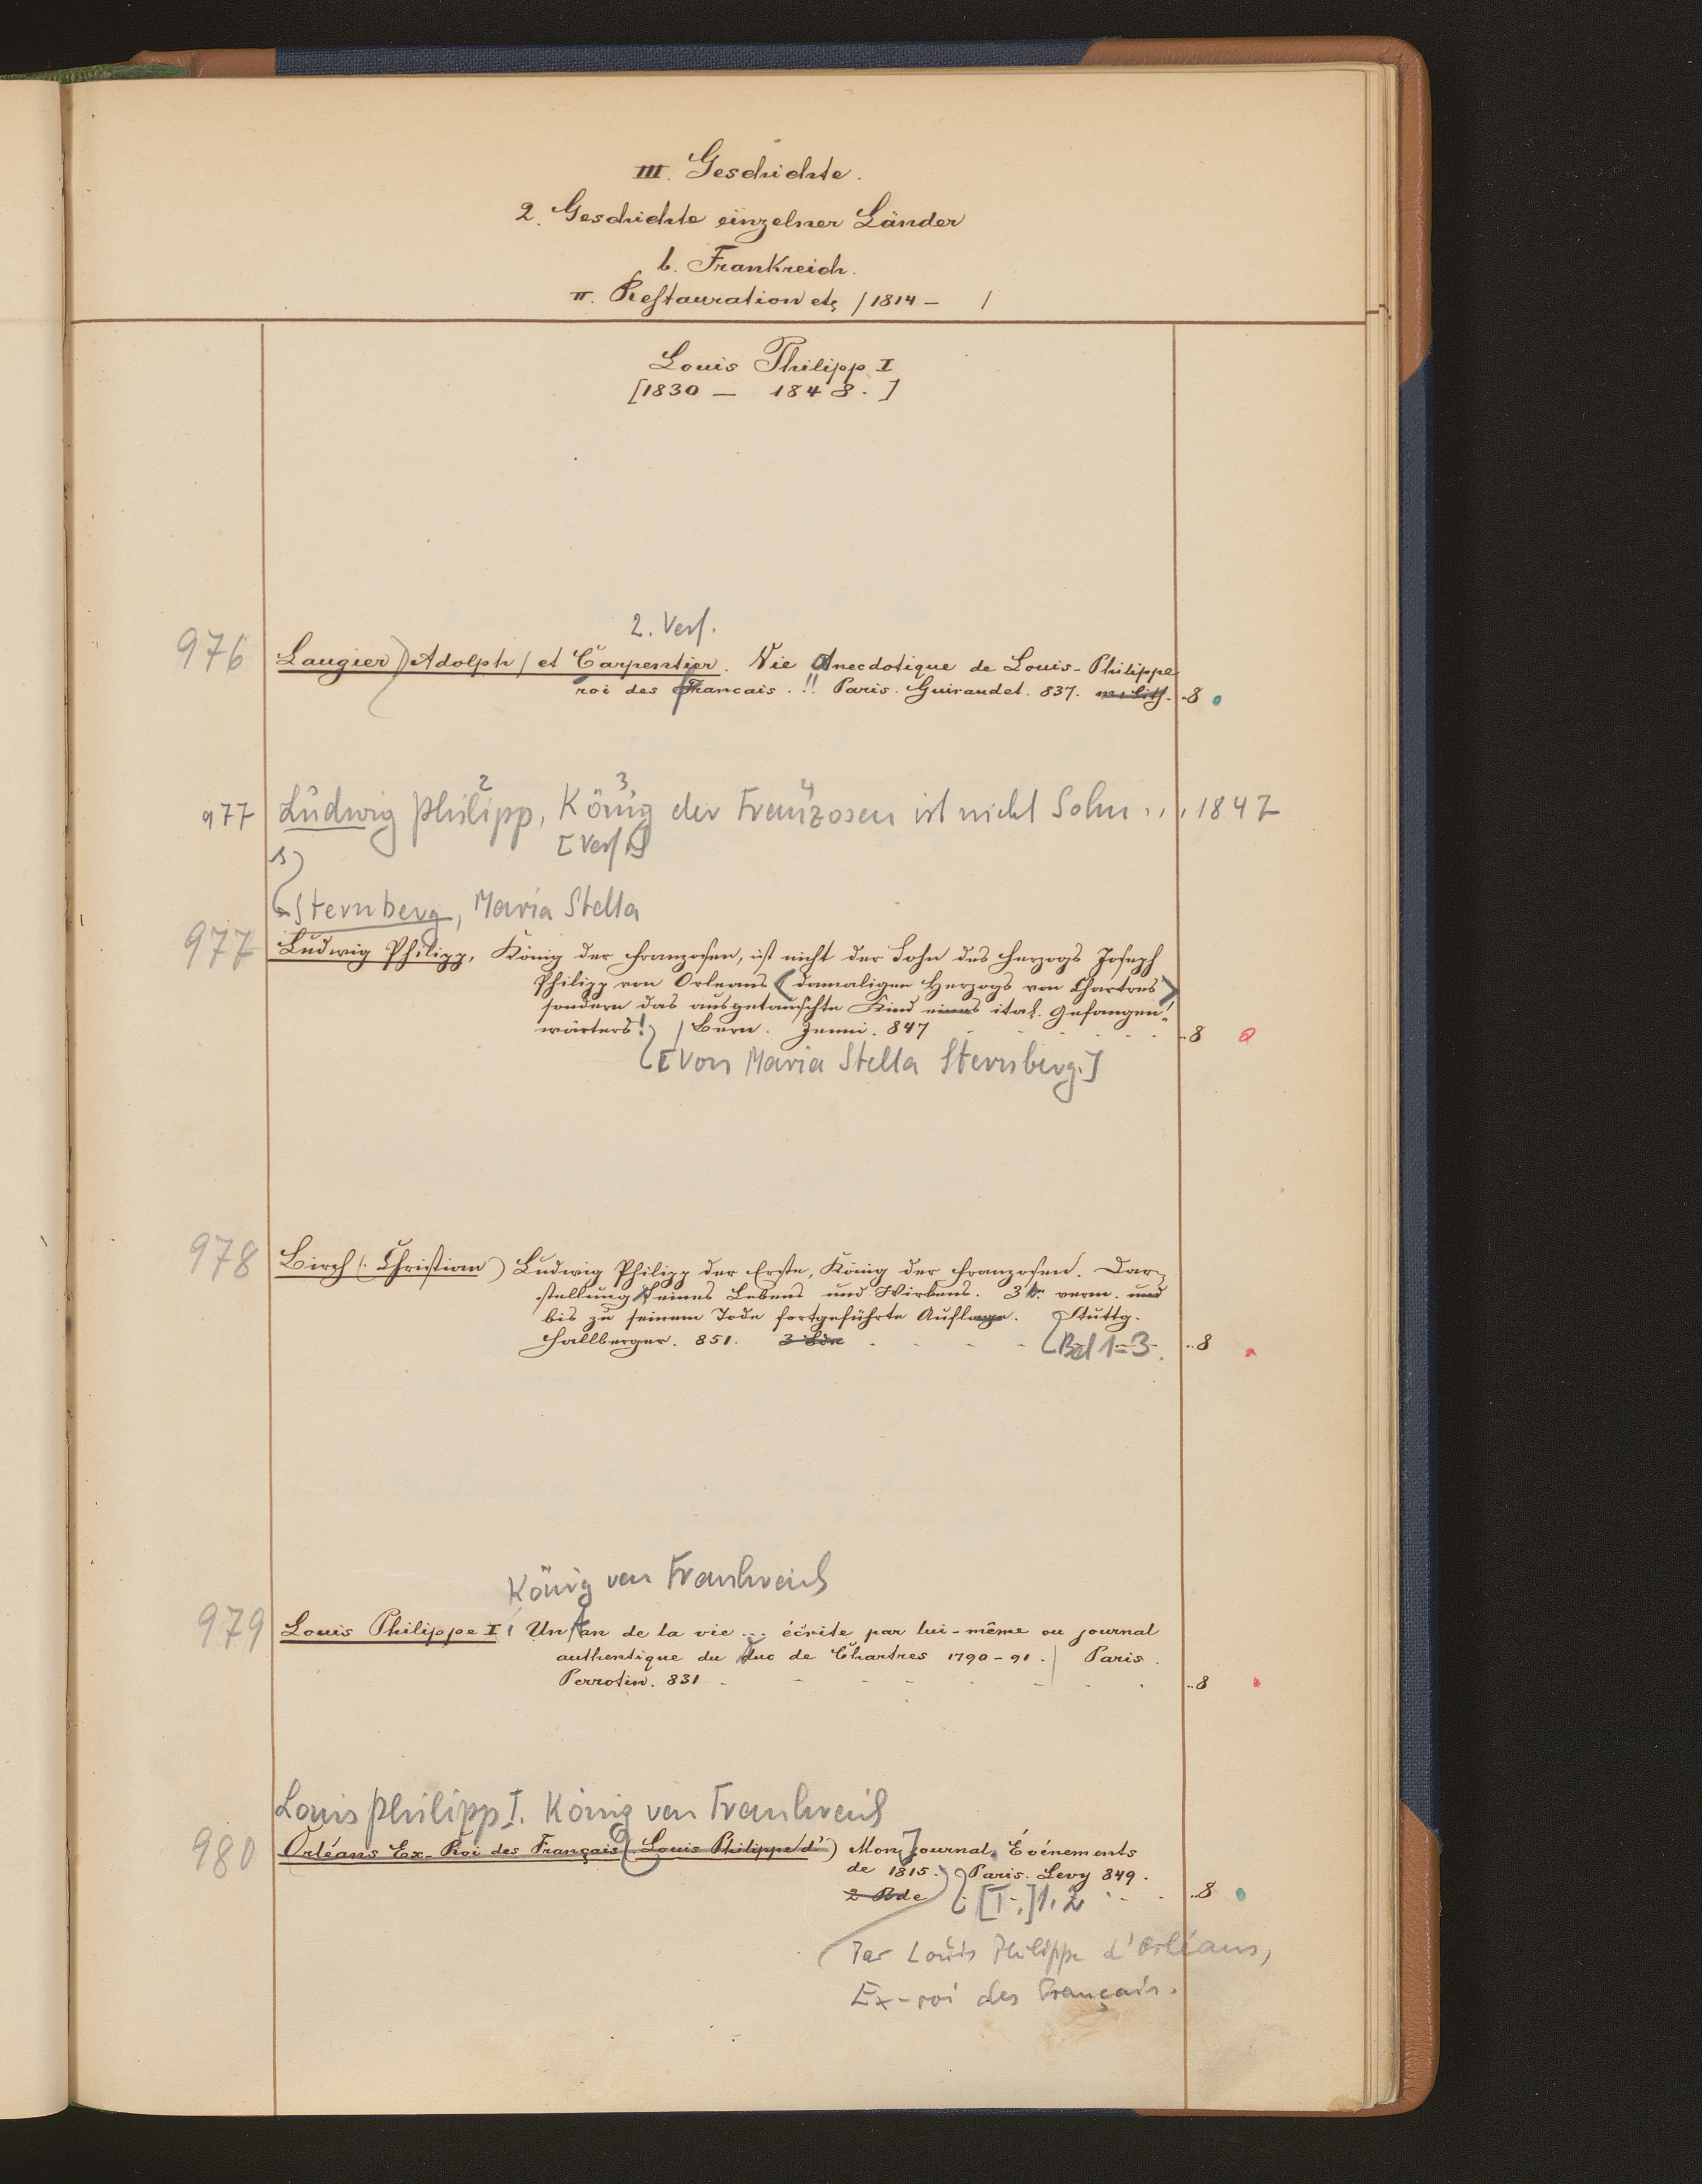 III. Geschichte.
2. Geschichte einzelner Länder
b. Frankreich.
π. Restauration etc /1814 – /
Louis Philipp I
[1830 – 1848.]
2. Verf.
976 Laugier) Adolph / et Carpentier. Vie anecdotique de Louis-Philippe
roi des francais. !! Paris. Guiraudet. 837. m. Lith. 8
977 Ludwig Philipp, König der Franzosen ist nicht Sohn ... 1847
2 3 4
[Verf.]
1)
Sternberg, Maria Stella
977 Ludwig Philipp, König der Franzosen, ist nicht der Sohn des Herzogs Joseph
Philipp von Orleans (damaligen Herzogs von Chartres)
sondern das ausgetauschte Kind eines ital. Gefangen-
wärters! / Bern. Jenni. 847 8
[Von Maria Stella Sternberg.]
978 Birch (: Christian) Ludwig Philipp der Erste, König der Franzosen. Dar-
stellung seines Lebens und Wirkens. 3te verm. und
bis zu seinem Tode fortgeführte Auflage. Stuttg.
Hallberger. 851. 3 Bde Bd 1-3. 8
König von Frankreich
979 Louis Philippe I, Un an de la vie ... écrite par lui-même ou journal
authentique du duc de Chartres 1790-91. / Paris.
Perrotin. 831 8
Louis Philipp I. König von Frankreich
980 Orléans Ex-Roi des Français (Louis Philippe d') Mon Journal. Événements
de 1815. Paris. Levy 849.
2 Bde [T.] 1. 2 8
Par Louis Philippe d'Orléans,
Ex-roi des Français.